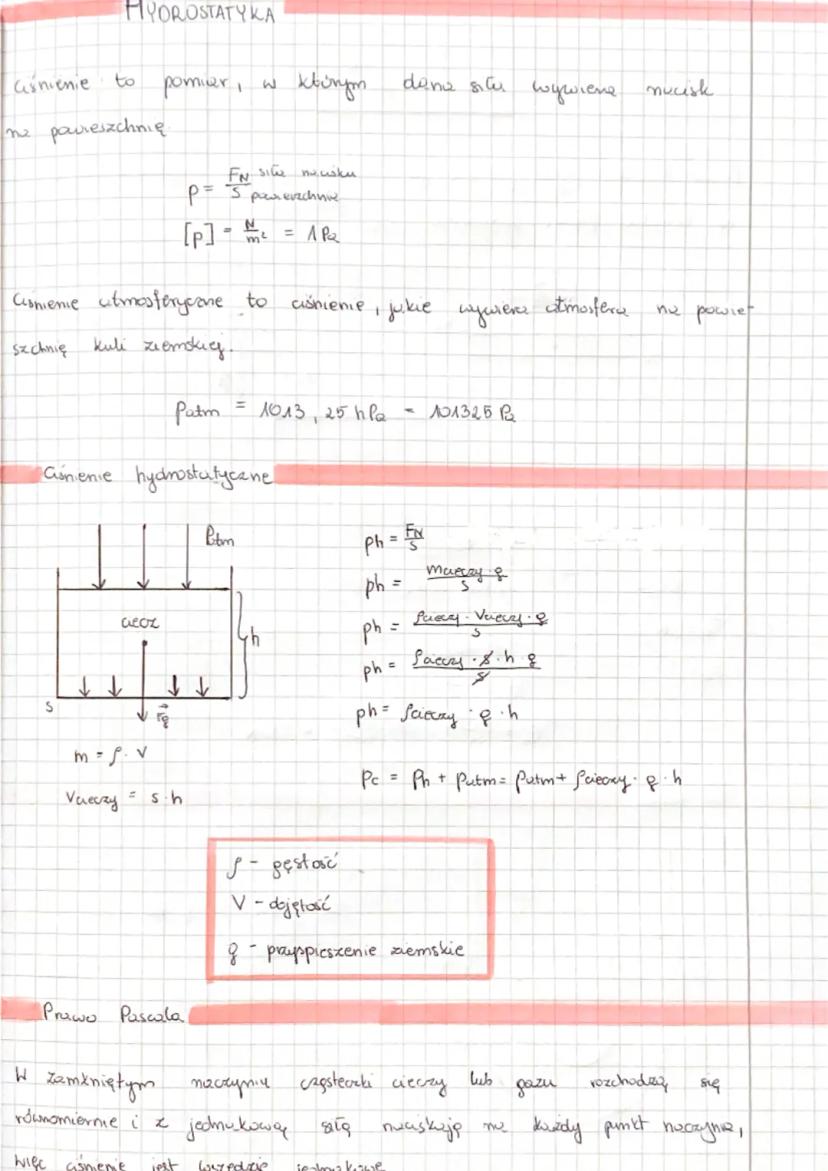 HYDROSTATYKA
Ciśnienie to pomiar, w którym dana siła wywiera nacisk
na powieszchnię.
p = FN siła nacisku
S powierzchnia
[p] = N/m² = 1 Pa
Ciśnienie atmosferyczne to ciśnienie, jakie wywiera atmosfera na powie-
szchnię kuli ziemskiej.
Patm = 1013,25 hPa = 101325 Pa
Ciśnienie hydrostatyczne
Patm
ciecz
h
S
Fg
m = ρ · V
Vcieczy = s · h
ph = FN/S
ph = mcieczy · g / S
ph = ρcieczy · Vcieczy · g / S
ph = ρcieczy · S · h g / S
ph = ρcieczy · g · h
Pc = Ph + Patm = Patm + ρcieczy · g · h
ρ - gęstość
V - objętość
g - przyspieszenie ziemskie
Prawo Pascala
W zamkniętym naczyniu cząsteczki cieczy lub gazu rozchodzą się
równomiernie i z jednakową siłą naciskają na każdy punkt naczynia,
więc ciśnienie jest wszędzie jednakowe